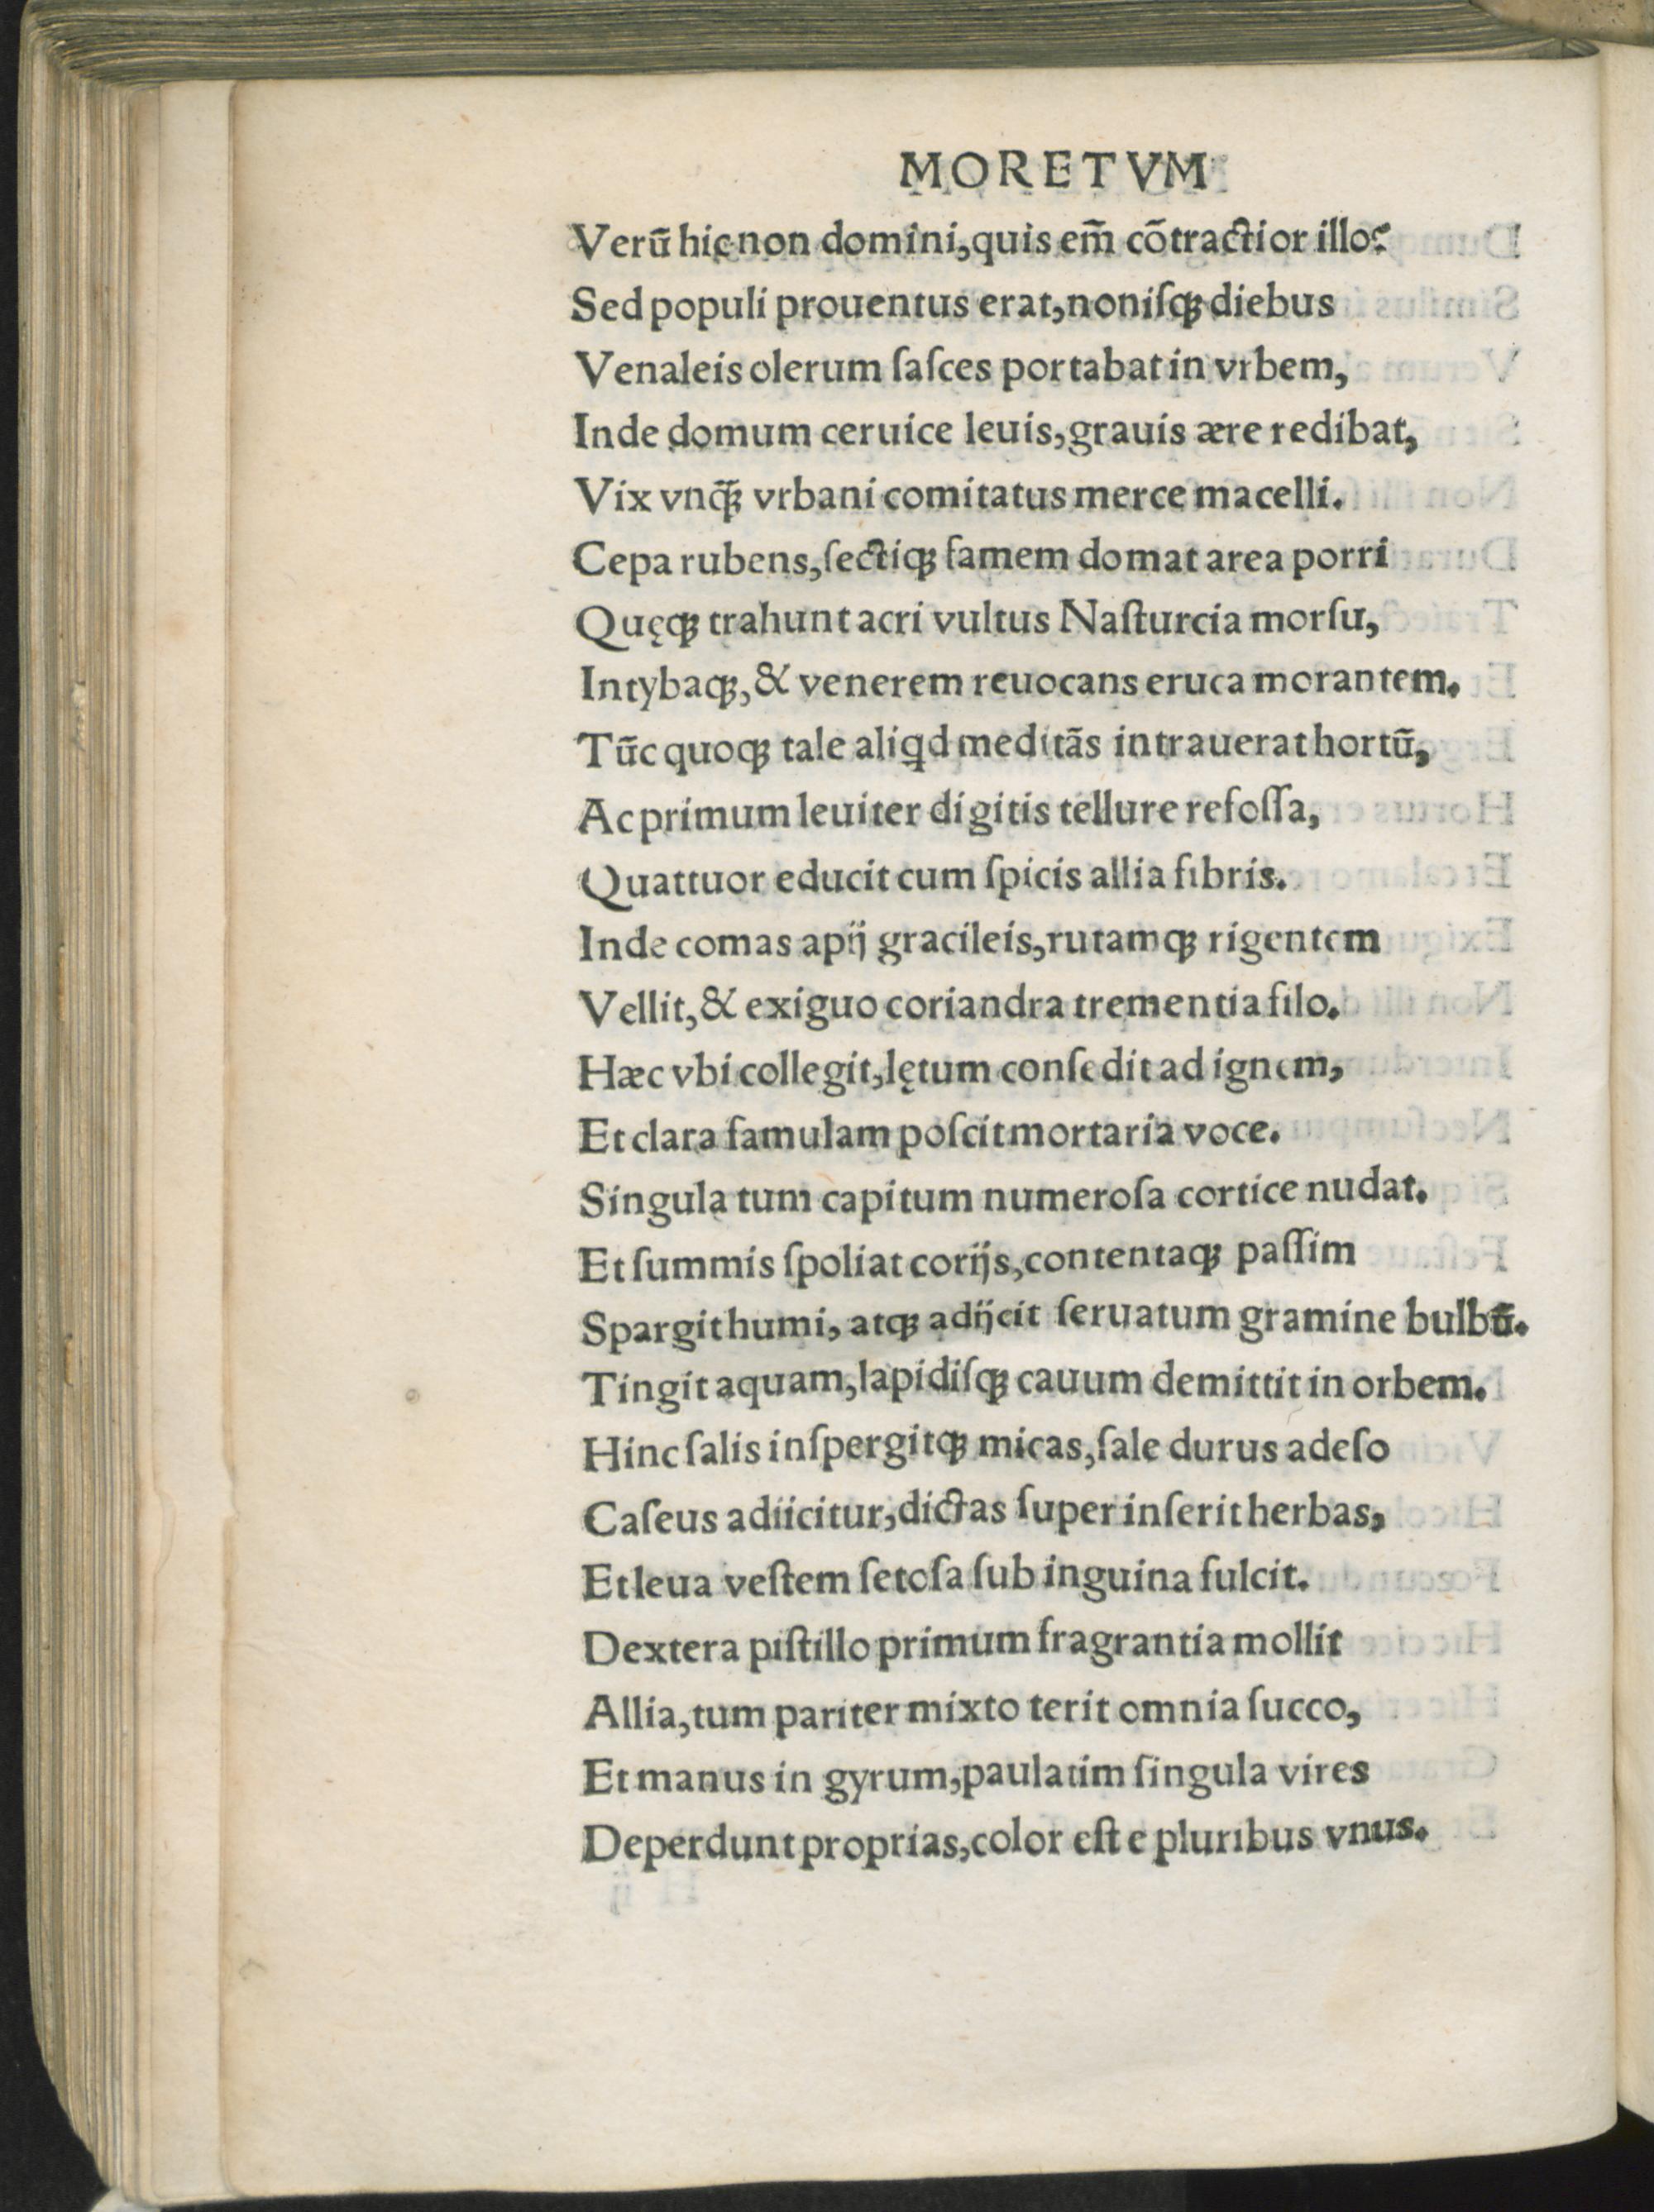 MORETVM
Verū hic non domini, quis em̄ cōtractior illo?
Sed populi prouentus erat, noniſqꝫ diebus
Venaleis olerum faſces portabat in vrbem,
Inde domum ceruice leuis, grauis ære redibat,
Vix vnq̄ꝫ vrbani comitatus merce macelli.
Cepa rubens, ſectiqꝫ famem domat area porri
Quęqꝫ trahunt acri vultus Naſturcia morſu,
Intybaqꝫ, & venerem reuocans eruca morantem.
Tūc quoqꝫ tale aliꝗd meditãs intrauerat hortū,
Ac primum leuiter digitis tellure refoſſa,
Quattuor educit cum ſpicis allia fibris.
Inde comas apij gracileis, rutamqꝫ rigentem
Vellit, & exiguo coriandra trementia filo.
Hæc vbi collegit, lętum conſedit ad ignem,
Et clara famulam poſcit mortaria voce.
Singula tum capitum numeroſa cortice nudat.
Et ſummis ſpoliat corijs, contentaqꝫ paſſim
Spargit humi, atqꝫ adijcit ſeruatum gramine bulbū.
Tingit aquam, lapidiſqꝫ cauum demittit in orbem.
Hinc ſalis inſpergitqꝫ micas, ſale durus adeſo
Caſeus adiicitur, dictas ſuper inſerit herbas,
Et leua veſtem ſetoſa ſub inguina fulcit.
Dextera piſtillo primum fragrantia mollit
Allia, tum pariter mixto terit omnia ſucco,
Et manus in gyrum, paulatim ſingula vires
Deperdunt proprias, color eſt e pluribus vnus.